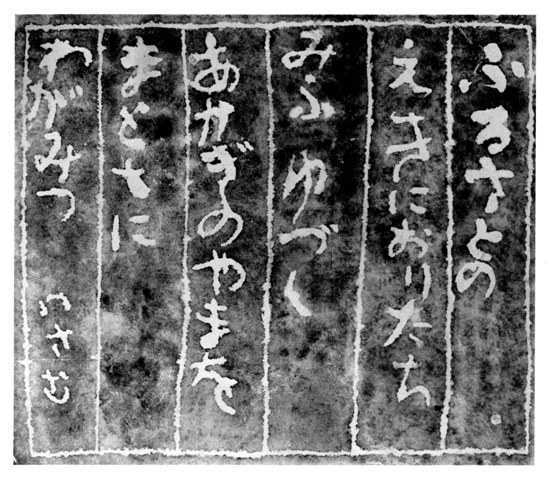 ふるさとの
えきにおりたち
みふゆづく
あかぎのやまを
まともに
わがみつ